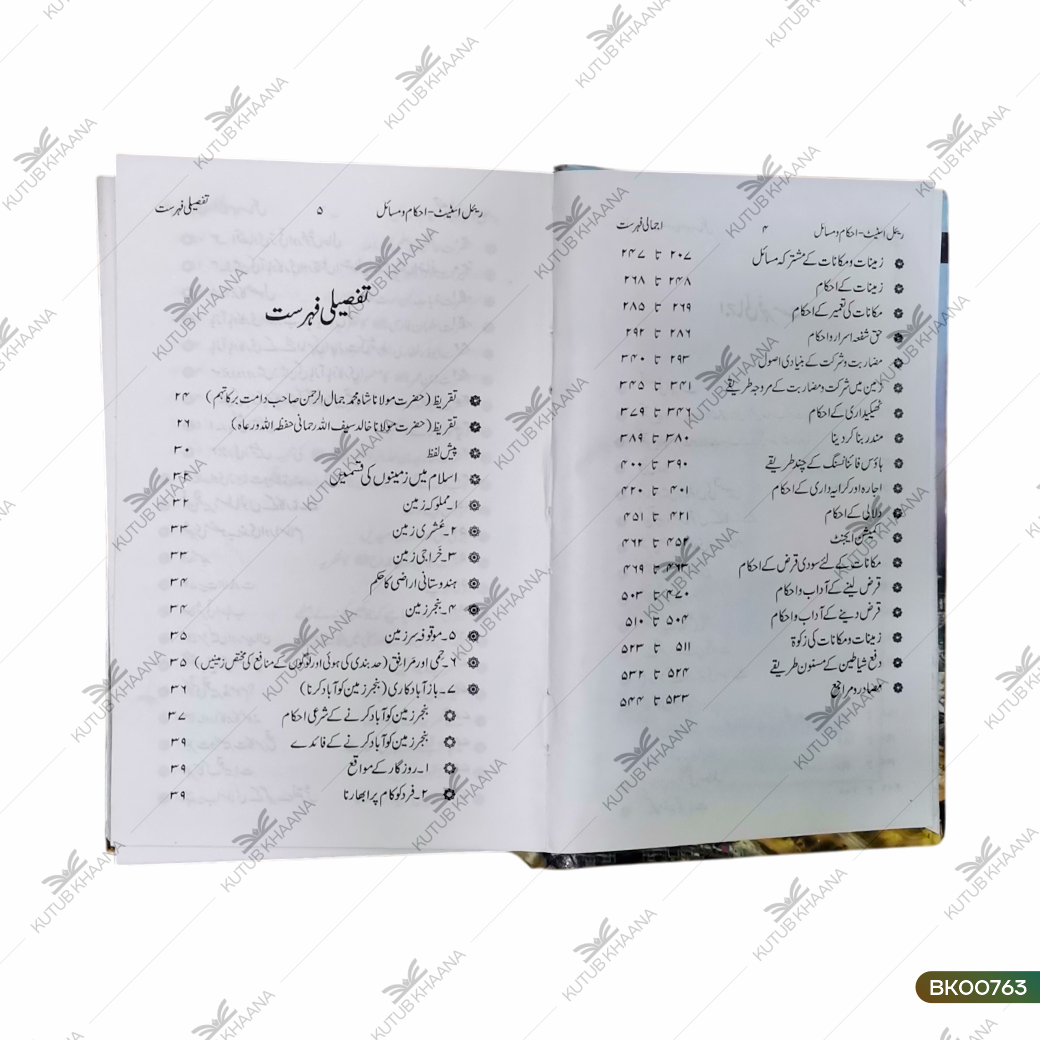 ریئل اسٹیٹ - احکام و مسائل ۴ اجمالی فہرست
زمینات و مکانات کے مشترکہ مسائل ۲۰۷ تا ۲۴۷
زمینات کے احکام ۲۴۸ تا ۲۶۸
مکانات کی تعمیر کے احکام ۲۶۹ تا ۲۸۵
حق شفعہ اسرار و احکام ۲۸۶ تا ۲۹۲
مضاربت و شرکت کے بنیادی اصول ۲۹۳ تا ۳۴۰
زمین میں شرکت و مضاربت کے مروجہ طریقے ۳۴۱ تا ۳۴۵
ٹھیکیداری کے احکام ۳۴۶ تا ۳۷۹
مندر بنا کر دینا ۳۸۰ تا ۳۸۹
ہاؤس فائنانسنگ کے چند طریقے ۳۹۰ تا ۴۰۰
اجارہ اور کرایہ داری کے احکام ۴۰۱ تا ۴۲۰
دلالی کے احکام ۴۲۱ تا ۴۵۱
کمیشن ایجنٹ ۴۵۲ تا ۴۶۲
مکانات کے لئے سودی قرض کے احکام ۴۶۳ تا ۴۶۹
قرض لینے کے آداب و احکام ۴۷۰ تا ۵۰۳
قرض دینے کے آداب و احکام ۵۰۴ تا ۵۱۰
زمینات و مکانات کی زکوۃ ۵۱۱ تا ۵۲۳
دفع شیاطین کے مسنون طریقے ۵۲۴ تا ۵۳۲
مصادر و مراجع ۵۳۳ تا ۵۴۴
ریئل اسٹیٹ - احکام و مسائل ۵ تفصیلی فہرست
تفصیلی فہرست
تقریظ (حضرت مولانا شاہ محمد جمال الرحمن صاحب دامت برکاتہم) ۲۴
تقریظ (حضرت مولانا خالد سیف اللہ رحمانی حفظہ اللہ ورعاہ) ۲۶
پیش لفظ ۳۰
اسلام میں زمینوں کی قسمیں
۱۔ مملوکہ زمین ۳۲
۲۔ عُشری زمین ۳۳
۳۔ خَراجی زمین ۳۳
ہندوستانی اراضی کا حکم ۳۴
۴۔ بنجر زمین ۳۴
۵۔ موقوفہ سر زمین ۳۵
۶۔ حِمی اور مَرافِق (حد بندی کی ہوئی اور لوگوں کے منافع کی مختص زمینیں) ۳۵
۷۔ باز آباد کاری (بنجر زمین کو آباد کرنا) ۳۶
بنجر زمین کو آباد کرنے کے شرعی احکام ۳۷
بنجر زمین کو آباد کرنے کے فائدے ۳۹
۱۔ روزگار کے مواقع ۳۹
۲۔ فرد کو کام پر ابھارنا ۳۹
KUTUB KHAANA
BK00763